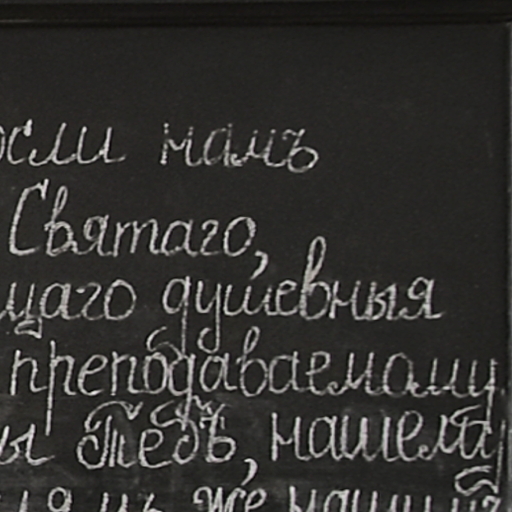 осли намъ
Святаго,
щаго душевныя
преподаваемому
ы Тебѣ, нашему
же нашимъ